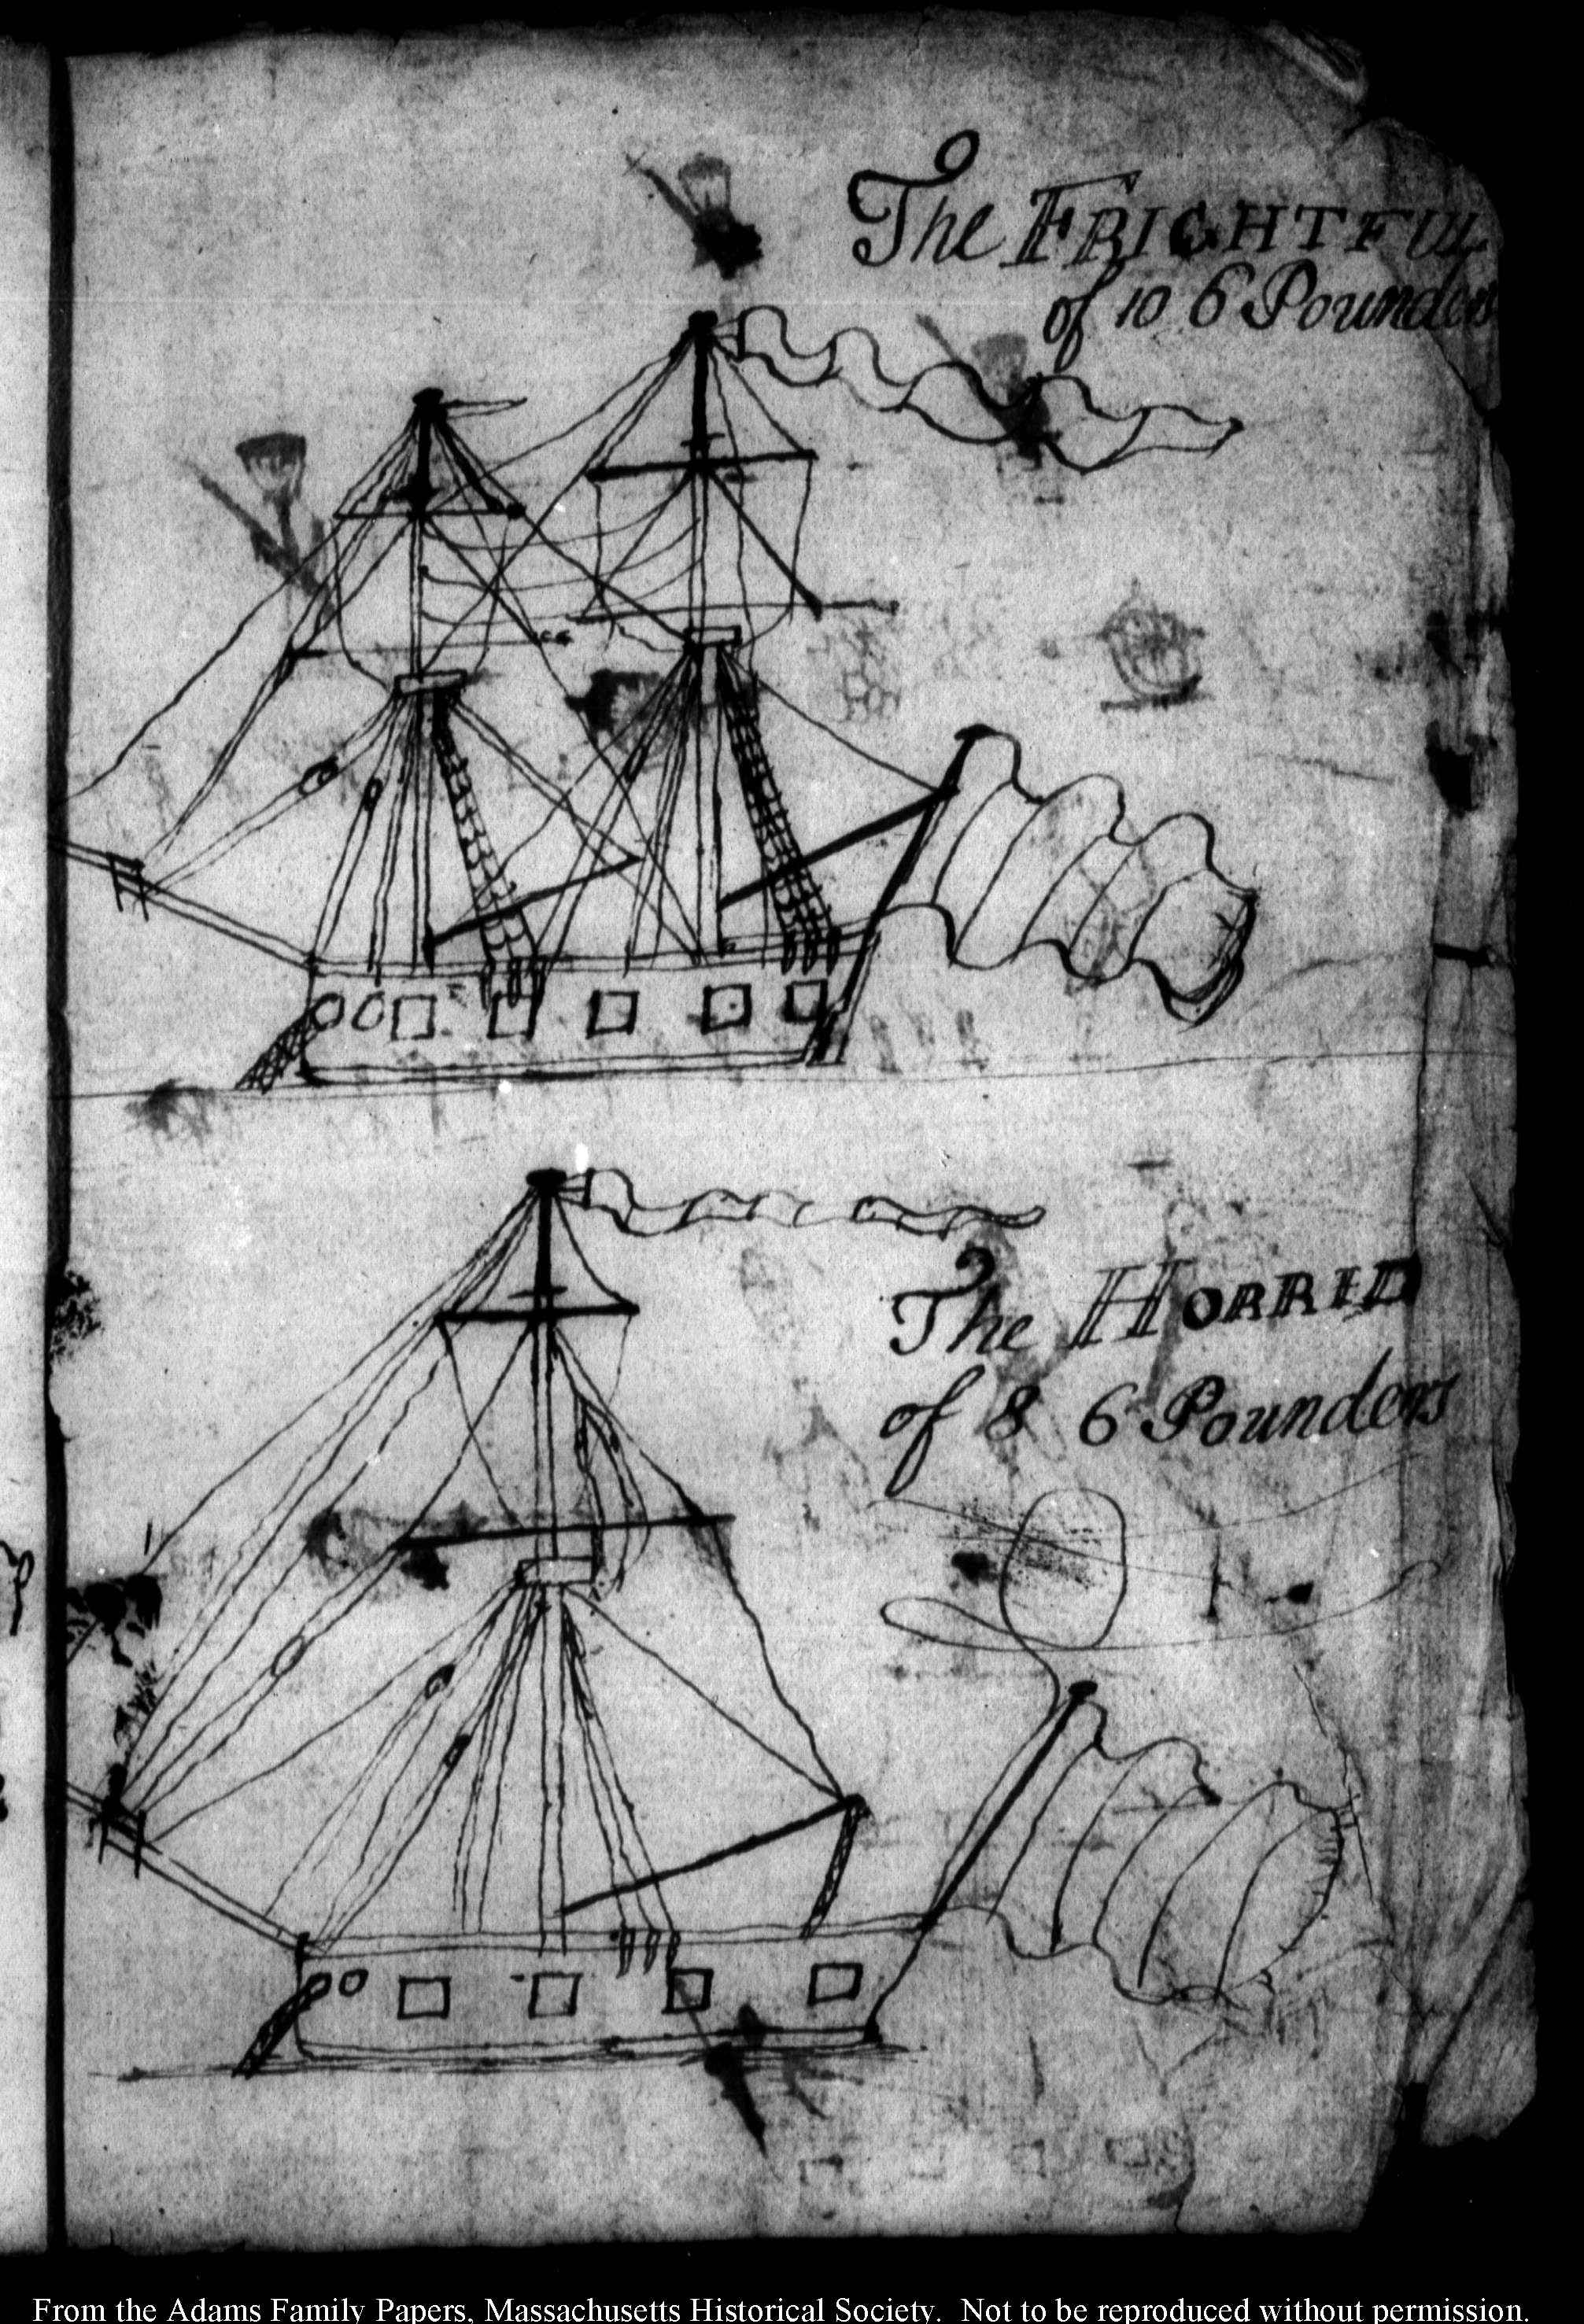 The FRIGHTFUL
of 10 6 Pounders
The HORRID
of 8 6 Pounders
From the Adams Family Papers, Massachusetts Historical Society. Not to be reproduced without permission.